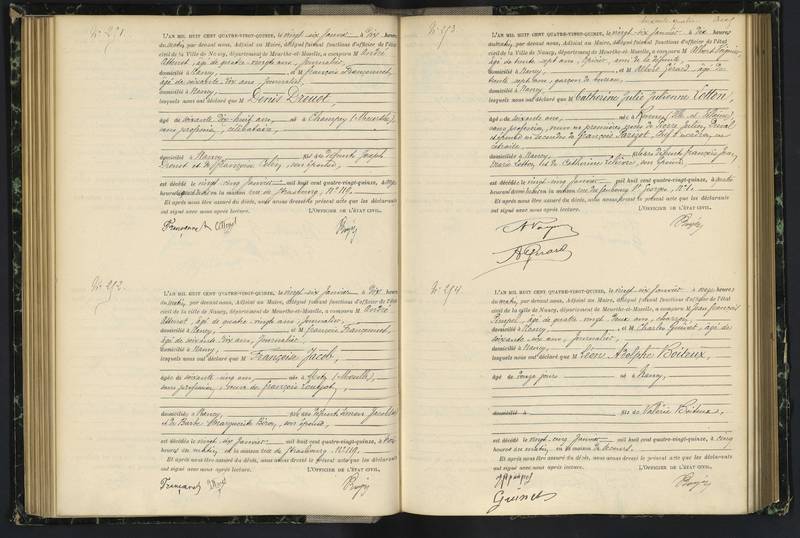 N° 291.
L'AN MIL HUIT CENT QUATRE-VINGT-QUINZE, le vingt-six Janvier à Dix heures
du matin, par devant nous, Adjoint au Maire, délégué faisant fonctions d'officier de l'état
civil de la Ville de Nancy, département de Meurthe-et-Moselle, a comparu M André
âgé de quatre-vingts ans, Journalier,
domicilié à Nancy, et M François
âgé de soixante-dix ans, Journalier
domicilié à Nancy,
lesquels nous ont déclaré que M Denis Drouot,
âgé de soixante-dix-huit ans, né à Champey (Meurthe),
sans profession, célibataire,
domicilié à Nancy, fils des défunts Joseph
Drouot et de Françoise, son épouse,
est décédé le vingt-cinq Janvier mil huit cent quatre-vingt-quinze, à
heures en la maison rue de Strasbourg, N° 119.
Et après nous être assuré du décès, nous avons dressé le présent acte que les déclarants
ont signé avec nous après lecture. L'OFFICIER DE L'ÉTAT CIVIL.
N° 292.
L'AN MIL HUIT CENT QUATRE-VINGT-QUINZE, le vingt-six Janvier à Dix heures
du matin, par devant nous, Adjoint au Maire, délégué faisant fonctions d'officier de l'état
civil de la ville de Nancy, département de Meurthe-et-Moselle, a comparu M André
âgé de quatre-vingts ans, Journalier,
domicilié à Nancy, et M François
âgé de soixante-dix ans, Journalier,
domicilié à Nancy,
lesquels nous ont déclaré que M Françoise Jacob,
âgée de soixante-cinq ans, née à Metz (Moselle),
sans profession, veuve de François
domiciliée à Nancy, fille des défunts Jacob
et de Barbe Marguerite, son épouse,
est décédée le vingt-six Janvier mil huit cent quatre-vingt-quinze, à
heures du matin en la maison rue de Strasbourg, N° 119.
Et après nous être assuré du décès, nous avons dressé le présent acte que les déclarants
ont signé avec nous après lecture. L'OFFICIER DE L'ÉTAT CIVIL.
N° 293.
L'AN MIL HUIT CENT QUATRE-VINGT-QUINZE, le vingt-six Janvier à Dix heures
du matin, par devant nous, Adjoint au Maire, délégué faisant fonctions d'officier de l'état
civil de la Ville de Nancy, département de Meurthe-et-Moselle, a comparu M Albert
âgé de trente-sept ans, ami de la défunte,
domicilié à Nancy, et M Albert Gérard, âgé de
trente-sept ans, garçon de bureau,
domicilié à Nancy,
lesquels nous ont déclaré que M Catherine Julie Julienne Lotton,
âgée de soixante ans, née à Rennes (Ille et Vilaine),
sans profession, veuve en premières noces de Pierre Julien
et en secondes de François
retraité,
domiciliée à Nancy, fille des défunts François Jean
Marie Lotton, et de Catherine, son épouse
est décédée le vingt-cinq Janvier mil huit cent quatre-vingt-quinze, à quatre
heures en la maison rue du faubourg St Georges, N° 1.
Et après nous être assuré du décès, nous avons dressé le présent acte que les déclarants
ont signé avec nous après lecture. L'OFFICIER DE L'ÉTAT CIVIL.
A Gérard
N° 294.
L'AN MIL HUIT CENT QUATRE-VINGT-QUINZE, le vingt-six Janvier à onze heures
du matin, par devant nous, Adjoint au Maire, délégué faisant fonctions d'officier de l'état
civil de la ville de Nancy, département de Meurthe-et-Moselle, a comparu M Jean François
âgé de quatre-vingt-deux ans,
domicilié à Nancy, et M Charles Guinet, âgé de
soixante-six ans, Journalier,
domicilié à Nancy,
lesquels nous ont déclaré que M Léon Adolphe Boiteux,
âgé de onze jours né à Nancy,
domicilié à fils de Valérie Boiteux,
est décédé le vingt-cinq Janvier mil huit cent quatre-vingt-quinze, à cinq
heures du matin en la maison de secours.
Et après nous être assuré du décès, nous avons dressé le présent acte que les déclarants
ont signé avec nous après lecture. L'OFFICIER DE L'ÉTAT CIVIL.
Guinet